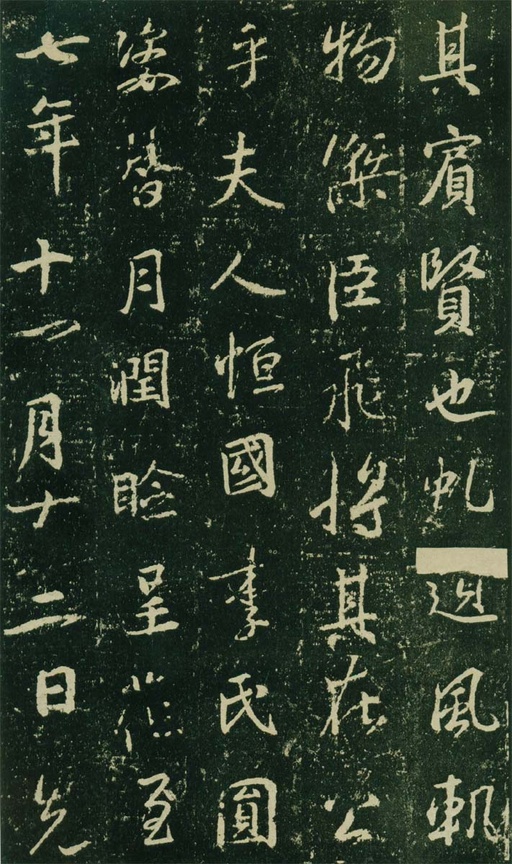 其賓賢也風軌
物傑臣飛將其在公
乎夫人恒國李氏圓
姿替月潤瞼呈至
七年十一月十二日先